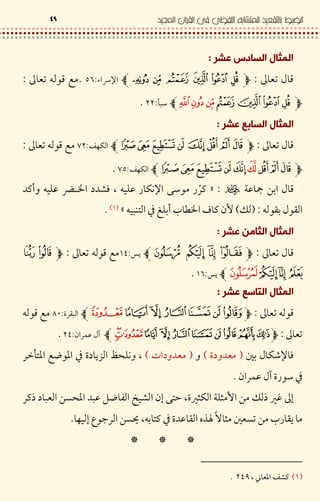 الضبط بالتقعيد للمتشابه اللفظي في القرآن المجيد
٤٩
المثال السادس عشر :
قال تعالى : ﴿ قُلِ ٱدْعُوا۟ ٱلَّذِينَ زَعَمْتُم مِّن دُونِهِۦ ﴾ الإسراء:٥٦ . مع قوله تعالى :
﴿ قُلِ ٱدْعُوا۟ ٱلَّذِينَ زَعَمْتُم مِّن دُونِ ٱللَّهِ ﴾ سبأ:٢٢ .
المثال السابع عشر :
قال تعالى : ﴿ قَالَ أَلَمْ أَقُلْ إِنَّكَ لَن تَسْتَطِيعَ مَعِىَ صَبْرًا ﴾ الكهف:٧٢ مع قوله تعالى :
﴿ قَالَ أَلَمْ أَقُل لَّكَ إِنَّكَ لَن تَسْتَطِيعَ مَعِىَ صَبْرًا ﴾ الكهف:٧٥ .
قال ابن جماعة : « كرّر موسى الإنكار عليه ، فشدد الخضر عليه وأكد
القول بقوله : (لك) لأن كاف الخطاب أبلغ في التنبيه » (١) .
المثال الثامن عشر :
قال تعالى : ﴿ فَقَالُوٓا۟ إِنَّآ إِلَيْكُم مُّرْسَلُونَ ﴾ يس:١٤ مع قوله تعالى : ﴿ قَالُوا۟ رَبُّنَا
يَعْلَمُ إِنَّآ إِلَيْكُمْ لَمُرْسَلُونَ ﴾ يس:١٦ .
المثال التاسع عشر :
قوله تعالى : ﴿ وَقَالُوا۟ لَن تَمَسَّنَا ٱلنَّارُ إِلَّآ أَيَّامًا مَّعْدُودَةً ﴾ البقرة:٨٠ مع قوله
تعالى : ﴿ ذَٰلِكَ بِأَنَّهُمْ قَالُوا۟ لَن تَمَسَّنَا ٱلنَّارُ إِلَّآ أَيَّامًا مَّعْدُودَٰتٍ ﴾ آل عمران:٢٤ .
فالإشكال بين ( معدودة ) و ( معدودات ) ، ونلحظ الزيادة في الموضع المتأخر
في سورة آل عمران .
إلى غير ذلك من الأمثلة الكثيرة، حتى إن الشيخ الفاضل عبد المحسن العباد ذكر
ما يقارب من تسعين مثالاً لهذه القاعدة في كتابه، يحسن الرجوع إليها.
* * *
(١) كشف المعاني ، ٢٤٩ .